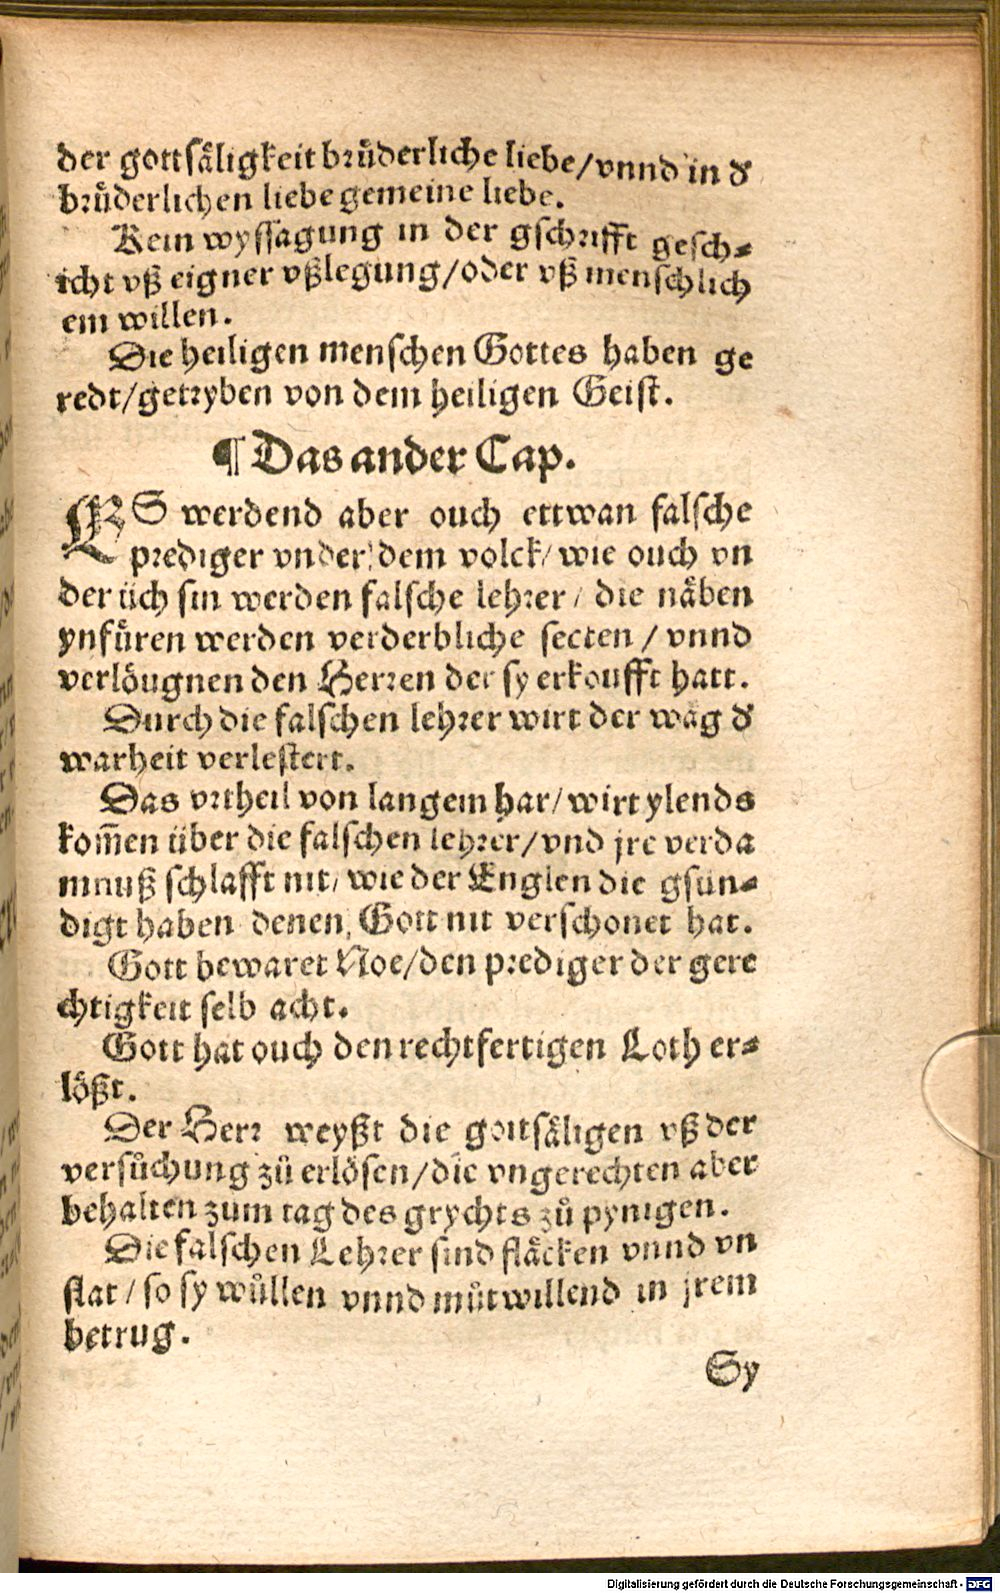 der gottsäligkeit brüderliche liebe/vnnd in d
brüderlichen liebe gemeine liebe.
Kein wyssagung in der gschrifft gesch⸗
icht vß eigner vßlegung/oder vß menschlich
em willen.
Die heiligen menschen Gottes haben ge
redt/getryben von dem heiligen Geist.
¶ Das ander Cap.
ES werdend aber ouch ettwan falsche
prediger vnder dem volck/wie ouch vn
der üch sin werden falsche lehrer/ die näben
ynfüren werden verderbliche secten/vnnd
verlöugnen den Herren der sy erkoufft hatt.
Durch die falschen lehrer wirt der wäg d
warheit verlestert.
Das vrtheil von langem har/wirt ylends
kom̄en über die falschen lehrer/vnd jre verda
mnuß schlafft nit/wie der Englen die gsün⸗
digt haben denen Gott nit verschonet hat.
Gott bewaret Noe/den prediger der gere
chtigkeit selb acht.
Gott hat ouch den rechtfertigen Loth er⸗
lößt.
Der Herr weyßt die gottsäligen vß der
versůchung zů erlösen/die vngerechten aber
behalten zum tag des grychts zů pynigen.
Die falschen Lehrer sind fläcken vnnd vn
flat/so sy wůllen vnnd můtwillend in jrem
betrug.
Sy
Digitalisierung gefördert durch die Deutsche Forschungsgemeinschaft - DFG